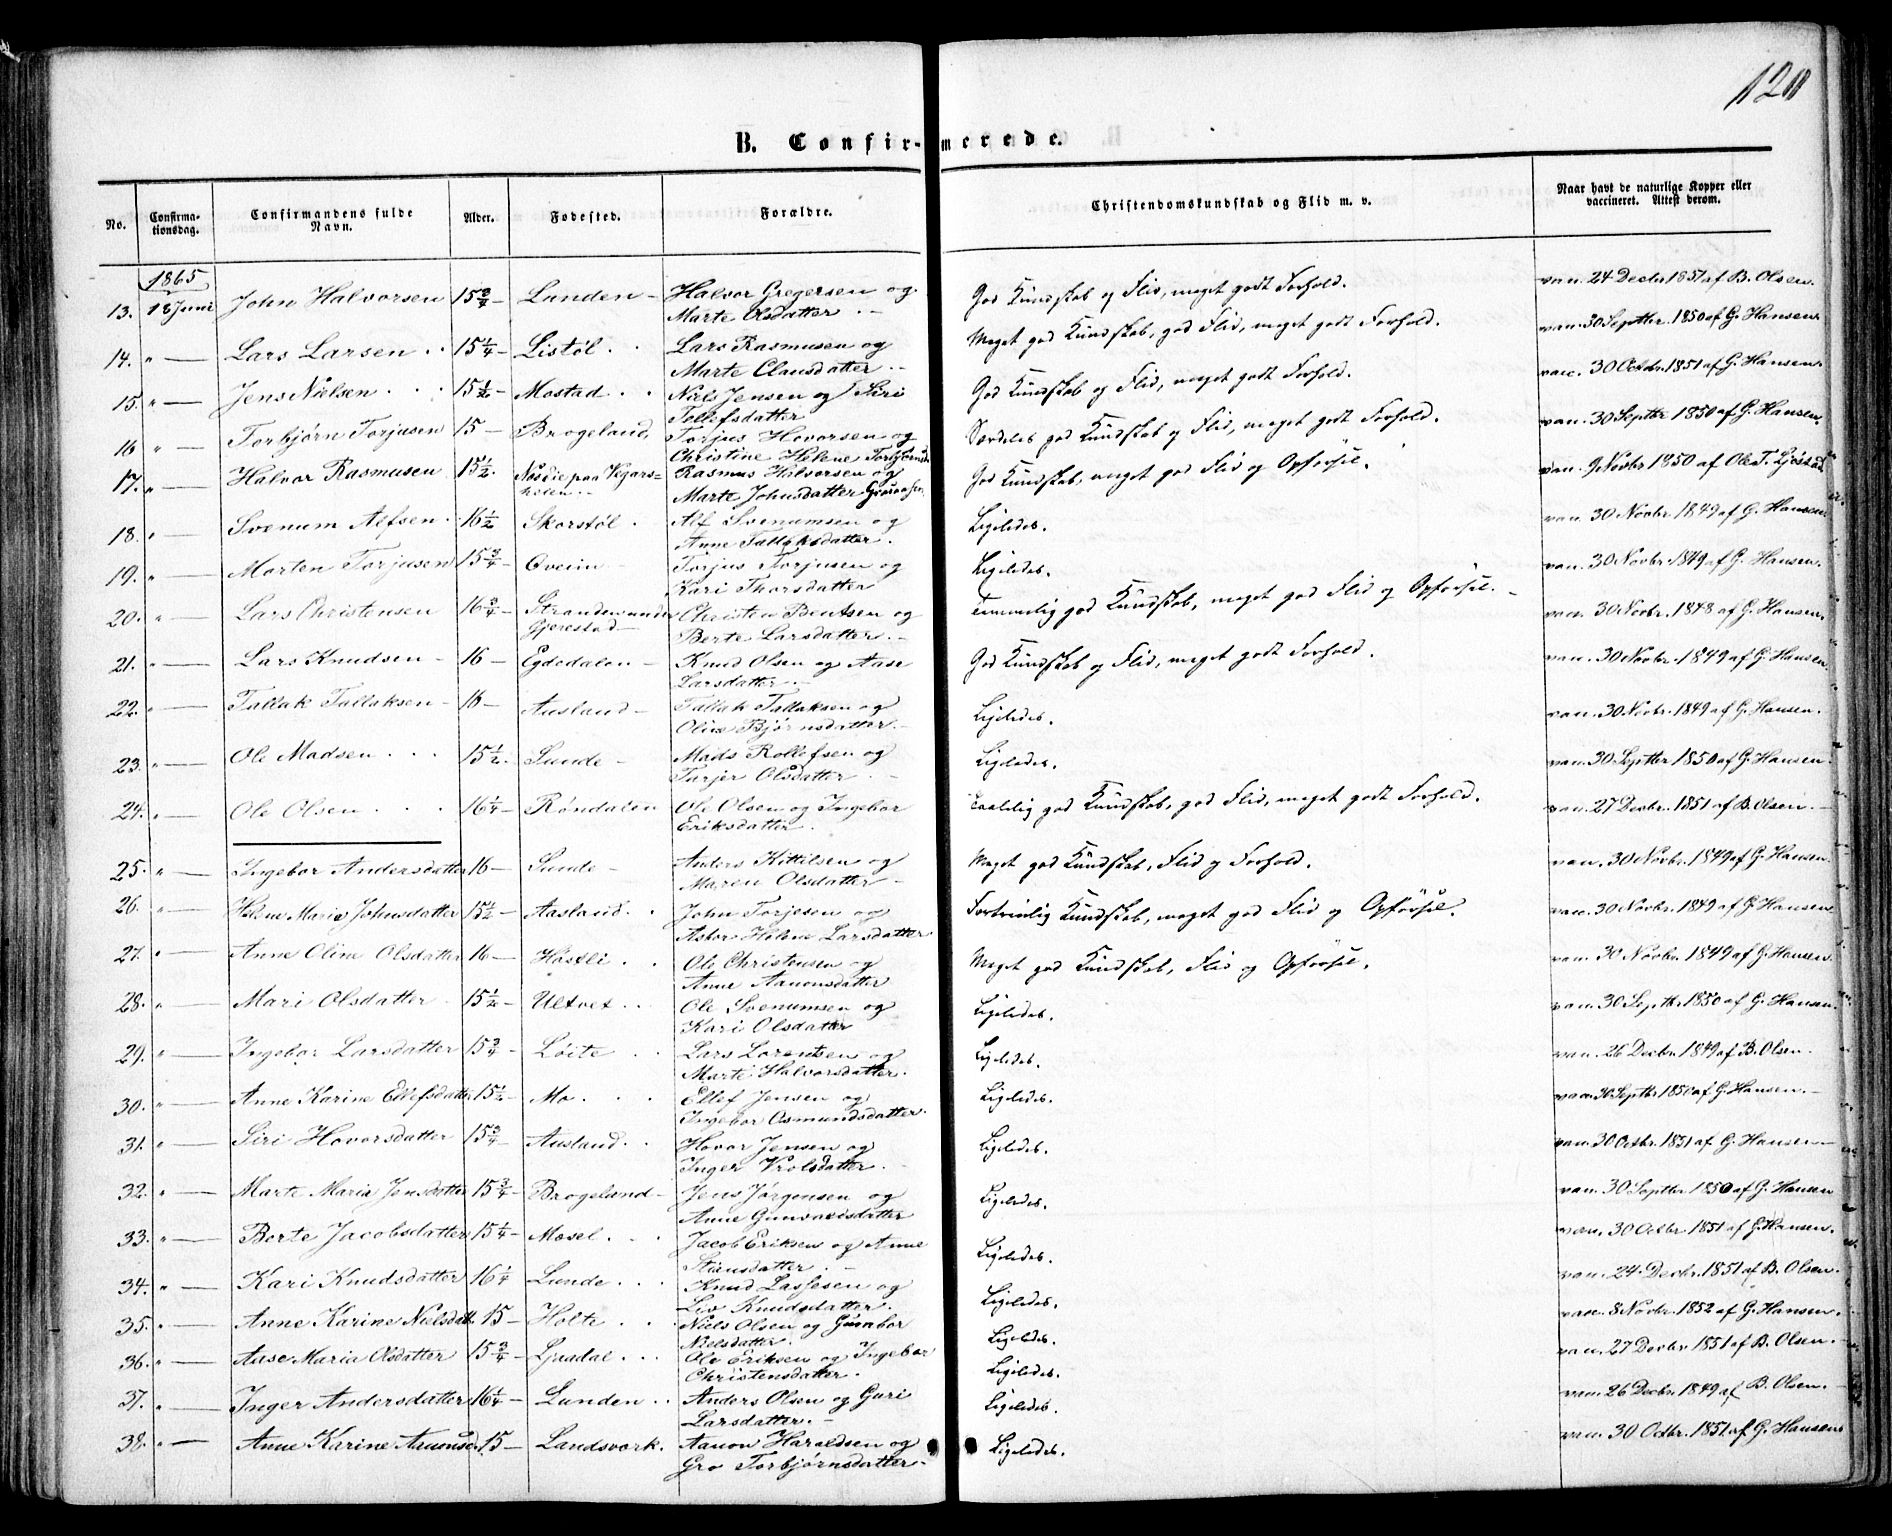 120
B. Confirmerede.
No. Confirmationsdag. Confirmandens fulde Navn. Alder. Fødested. Forældre. Christendomskundskab og Flid m. v. Naar havt de naturlige Kopper eller vaccineret. Attest derom.
1865
13. 18 Juni John Halvorsen 15 3/4 - Lunden - Halvor Gregersen og Marte Olsdatter. - God Kundskab og Flid, meget godt Forhold. vac. 24 Decbr 1851 af B. Olsen.
14. " — Lars Larsen . . 15 1/4 - Listøl . . Lars Rasmusen og Marte Clausdatter . - Meget god Kundskab, god Flid, meget godt Forhold. vac. 30 Septbr. 1850 af G. Hansen.
15. " — Jens Nielsen . . . 15 1/2 - Mostad . . Niels Jensen og Siri Tollefsdatter God Kundskab og Flid, meget godt Forhold. vac. 30 Octbr. 1851 af G. Hansen.
16 " — Torbjørn Torjusen 15 - Brogeland, Torjus Hovorsen og Christine Helene Særdeles god Kundskab og Flid, meget godt Forhold. vac. 30 Septbr 1850 af G. Hansen.
17. " — Halvor Rasmusen 15 1/2. paa Rasmus Halvorsen og Marte Johnsdatter God Kundskab, meget god Flid og Opførsel. vac. 9 Novbr 1850 af Ole T.
18. " — Svenum Alfsen . 16 1/2 - Skorstøl . Alf Svenumsen og Anne Tallaksdatter. Ligeledes. vac. 30 Novbr. 1849 af G. Hansen
19. " — Morten Torjusen 15 3/4 - Oveim - Torjus Torjusen og Kari Thorsdatter Ligeledes. vac. 30 Novbr. 1849 af G. Hansen.
20. " — Lars Christensen 16 3/4 - Stranden under Gjerestad - Christen Bentsen og Berte Larsdatter. - Temmelig god Kundskab, meget god Flid og Opførsel. - vac. 30 Novbr. 1848 af G. Hansen.
21. " — Lars Knudsen - 16 - Egdedalen - Knud Olsen og Aase Larsdatter. - God Kundskab og Flid, meget godt Forhold. vac. 30 Novbr. 1849 af G. Hansen.
22. " — Tallak Tallaksen - 16 - Ausland - Tallak Tallaksen og Oline Bjørnsdatter. - Ligeledes. vac. 30 Novbr. 1849 af G. Hansen.
23. " — Ole Madsen . . . 15 1/2. Sunde - Mads Rollefsen og Torjer Olsdatter . - Ligeledes. vac. 30 Septbr 1850 af G. Hansen.
24. " — Ole Olsen . . . 16 1/4 - Røndalen Ole Olsen og Ingebor Eriksdatter. Taalelig god Kundskab, god Flid, meget godt Forhold. vac. 27 Decbr. 1851 af B. Olsen. -
25. " — Ingebor Andersdatter 16 - Sunde - Anders Kittilsen og Maren Olsdatter - Meget god Kundskab, Flid og Forhold. vac. 30 Novbr. 1849 af G. Hansen.
26. " — Helene Marie Johnsdatter 15 1/2 - Aasland. . John Torjesen og Helene Larsdatter Fortrinlig Kundskab, meget god Flid og Opførsel. vac. 30 Novbr. 1849 af G. Hansen.
27. " — Anne Oline Olsdatter 16 - Høstli . . Ole Christensen og Anne Aanonsdatter Meget god Kundskab, Flid og Opførsel. vac. 30 Novbr. 1849 af G. Hansen.
28. " — Mari Olsdatter . 15 1/2 - Ultvet . . Ole Svenumsen og Kari Olsdatter Ligeledes. vac. 30 Septbr 1850 af G. Hansen.
29. " — Ingebor Larsdatter 15 3/4 - Løite . . Lars Lorentsen og Marte Halvorsdatter. Ligeledes. vac. 26 Decbr 1849 af B. Olsen.
30. " — Anne Karine Ellefsdatter 15 1/2 - Mo . . . Ellef Jensen og Ingebor Osmundsdatter. Ligeledes. vac. 30 Septbr 1850 af G. Hansen. -
31. " — Siri Hovorsdatter 15 3/4 - Ausland . . Hovor Jensen og Inger Vrolsdatter. - Ligeledes. vac. 30 Octbr. 1851 af G. Hansen -
32. " — Marte Maria Jensdatter 15 3/4 - Brogeland - Jens Jørgensen og Anne Ligeledes. vac. 30 Septbr 1850 af G. Hansen
33. " — Berte Jacobsdatter 15 1/4 - Mosel . . . Jacob Eriksen og Anne Stiansdatter. - Ligeledes. vac. 30 Octbr. 1851 af G. Hansen.
34. " — Kari Knudsdatter 16 1/4 - Lunde . . . Knud Lassesen og Liv Knudsdatter. Ligeledes. vac. 24 Decbr. 1851 af B. Olsen.
35. " — Anne Karine Nielsdatt. 15 - Holte . . Niels Olsen og Gunbor Nielsdatter. Ligeledes. vac. 8 Novbr. 1852 af G. Hansen.
36. " — Aase Maria Olsdatter 15 3/4 - Ljosdal . . . Ole Eriksen og Ingebor Christensdatter. Ligeledes. vac. 27 Decbr 1851 af B. Olsen. -
37. " — Inger Andersdatter 16 1/4 - Lunden . . Anders Olsen og Guri Larsdatter. - Ligeledes. vac. 26 Decbr. 1849 af B. Olsen. -
38. " — Anne Karine 15 - Landsverk. Aanon Haraldsen og Gro Torbjørnsdatter. - Ligeledes. vac. 30 Octbr. 1851 af G. Hansen